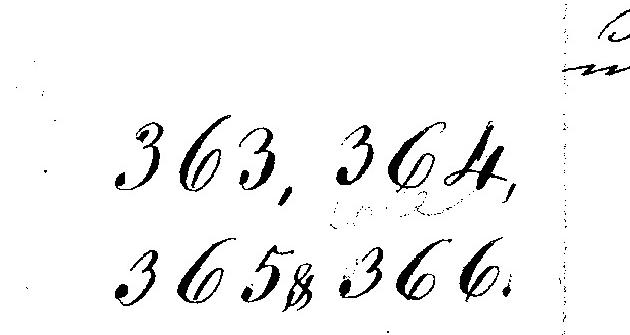 363, 364,
365 & 366.